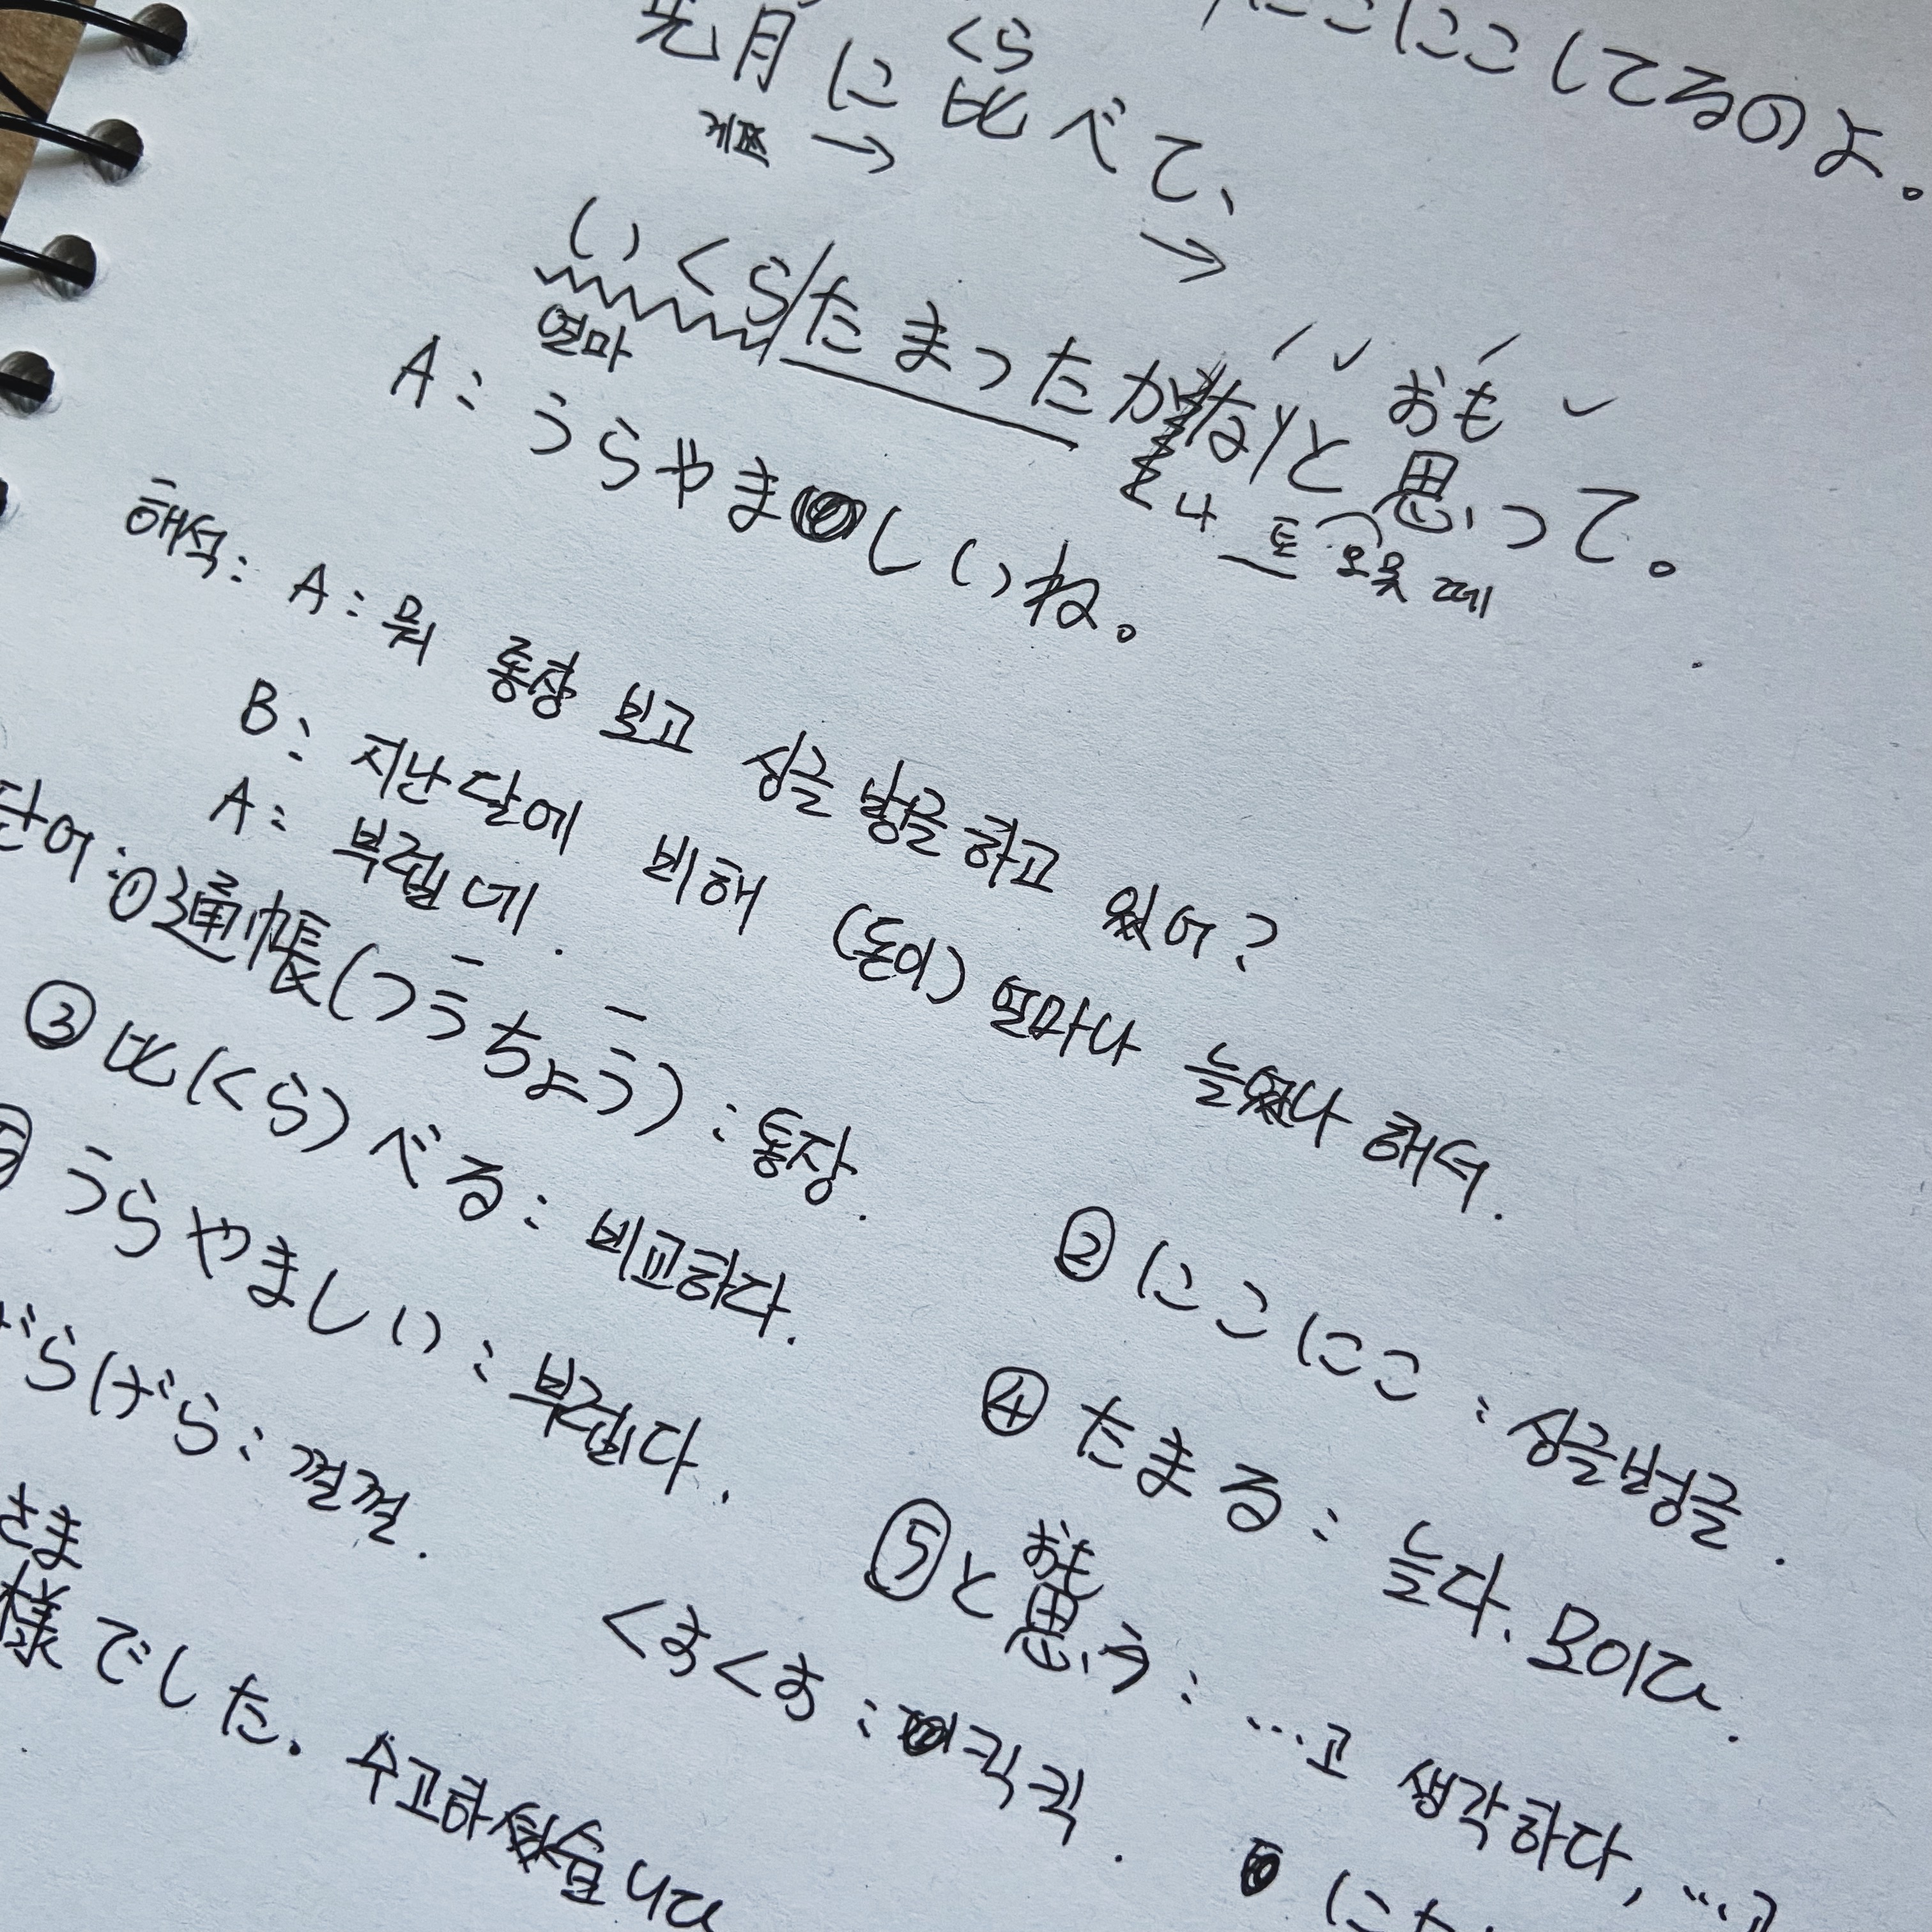 にこにこしてるのよ。
くら
先月に比べて、
いくらたまったかな)と思って。
おも
얼마
A: うらやましいね。
나 토 오못 떼
해석: A: 뭐 통장 보고 싱글벙글하고 있어?
B: 지난달에 비해 (돈이) 얼마나 늘었나 해서.
A: 부럽네.
단어: ①通帳(つうちょう): 통장.
② にこにこ: 싱글벙글.
③ 比(くら)べる: 비교하다.
④ たまる: 늘다. 모이다.
うらやましい: 부럽다.
⑤ と思う: …고 생각하다, …고
おも
げらげら: 껄껄.
くすくす: 킥킥.
さま
様でした. 수고하셨습니다